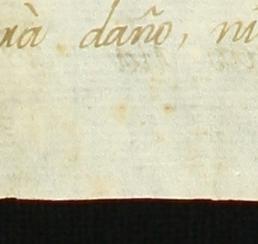 daño, ni